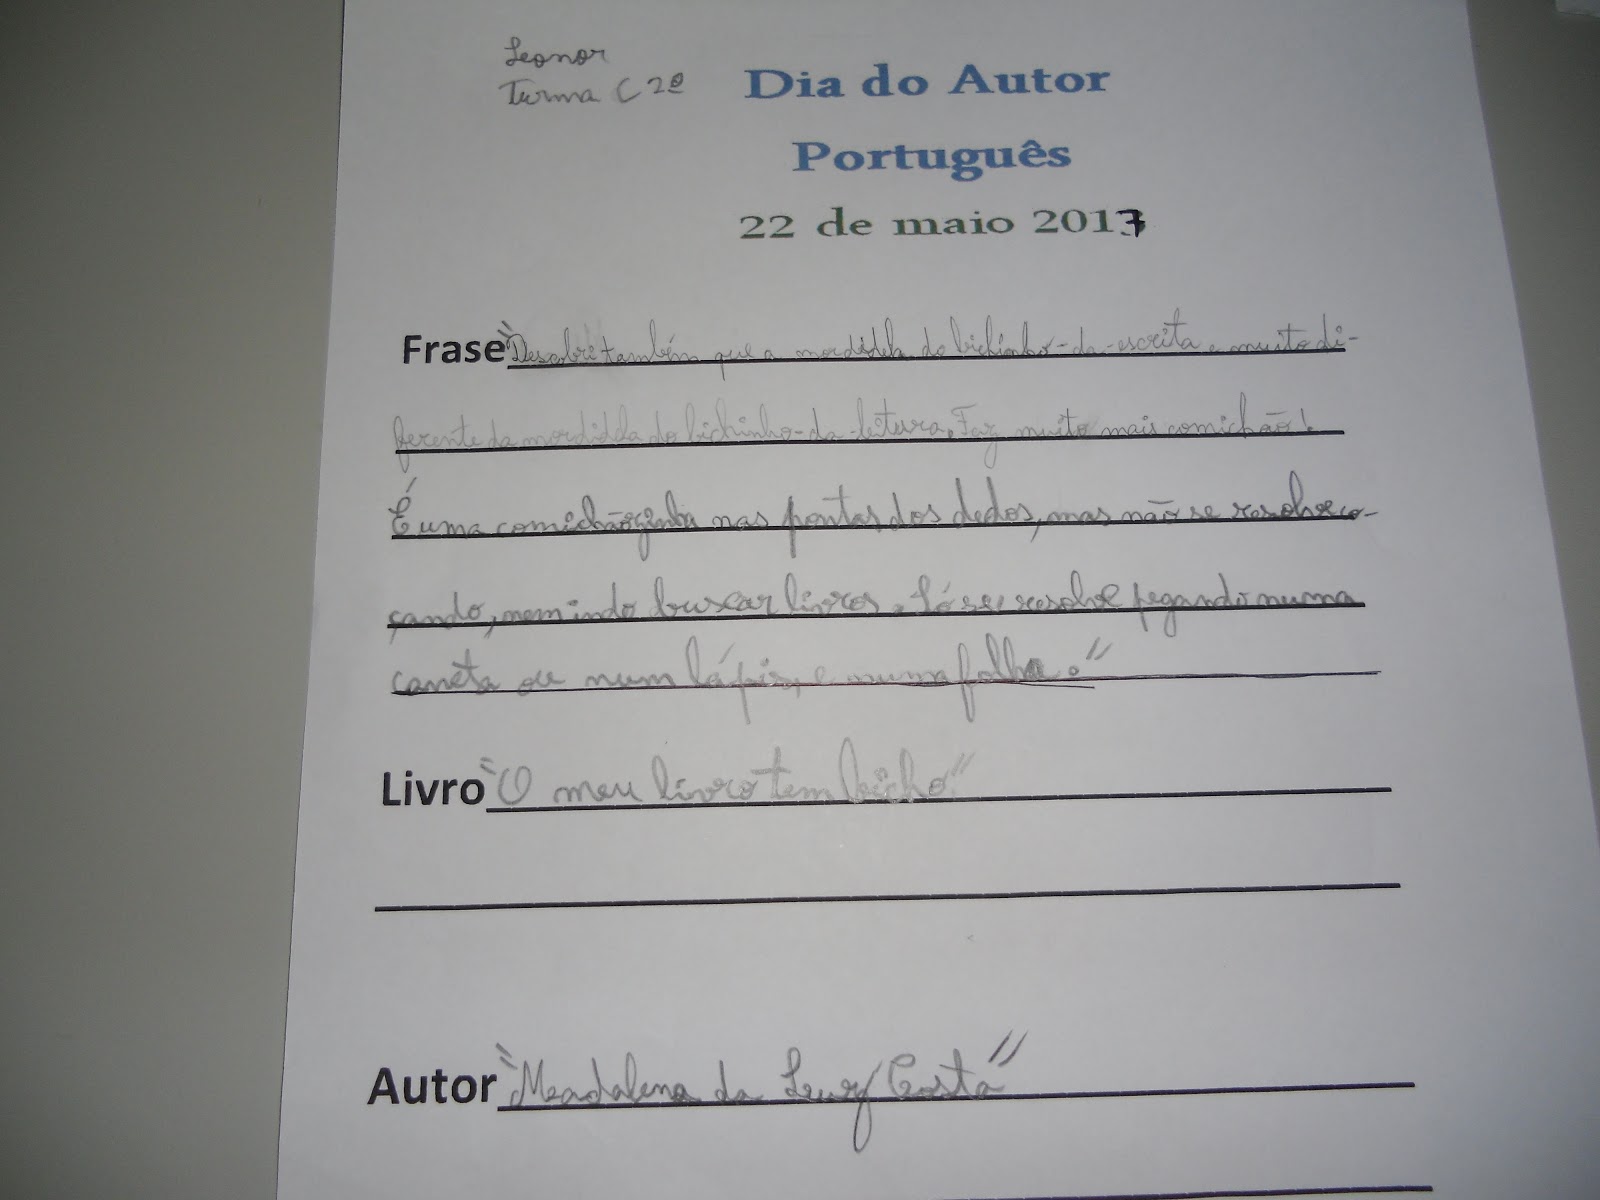 Leonor
Turma C 2º
Dia do Autor
Português
22 de maio 2017
Frase "Descobri também que a mordidela do bichinho-da-escrita e muito di-
ferente da mordidela do bichinho-da-leitura. Faz muito mais comichão!
É uma comichãozinha nas pontas dos dedos, mas não se resolve co-
çando, nem indo buscar livros. Só se resolve pegando numa
caneta ou num lápis, e numa folha."
Livro "O meu livro tem bicho"
Autor "Madalena da Luz Costa"